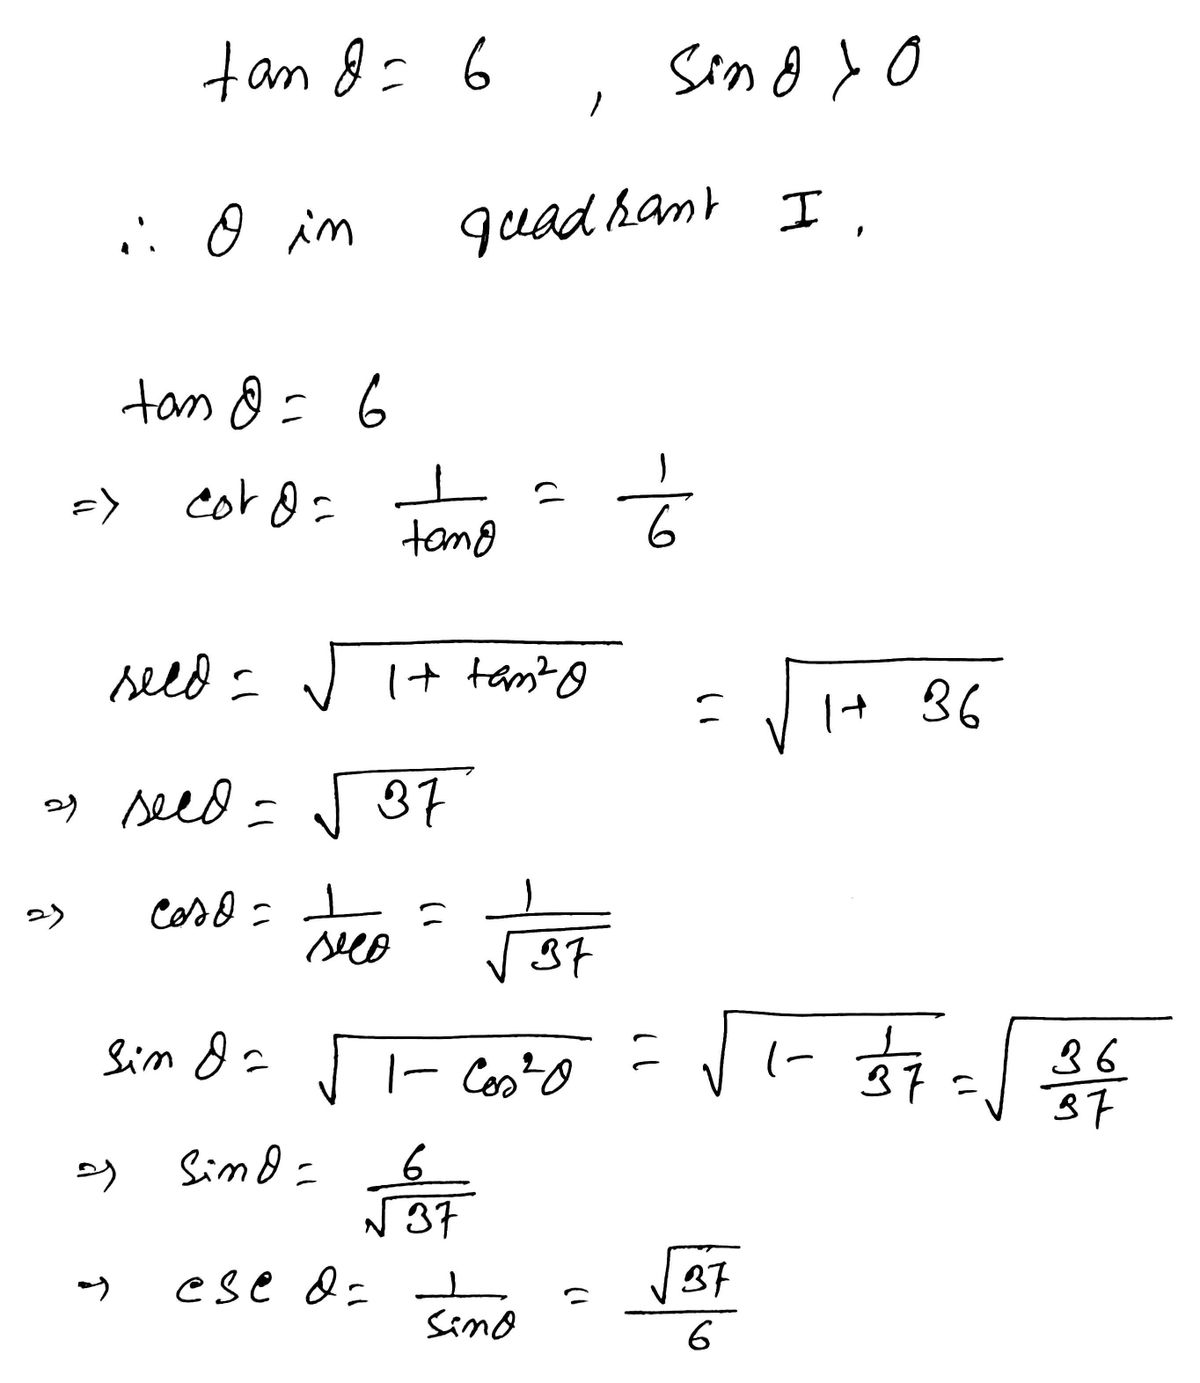 tan θ = 6 , sin θ > 0
∴ θ in quadrant I.
tan θ = 6
=> cot θ = 1/tanθ = 1/6
secθ = √(1 + tan²θ) = √(1 + 36)
=> secθ = √37
=> cosθ = 1/secθ = 1/√37
sin θ = √(1 - cos²θ) = √(1 - 1/37) = √(36/37)
=> sinθ = 6/√37
=> csc θ = 1/sinθ = √37/6